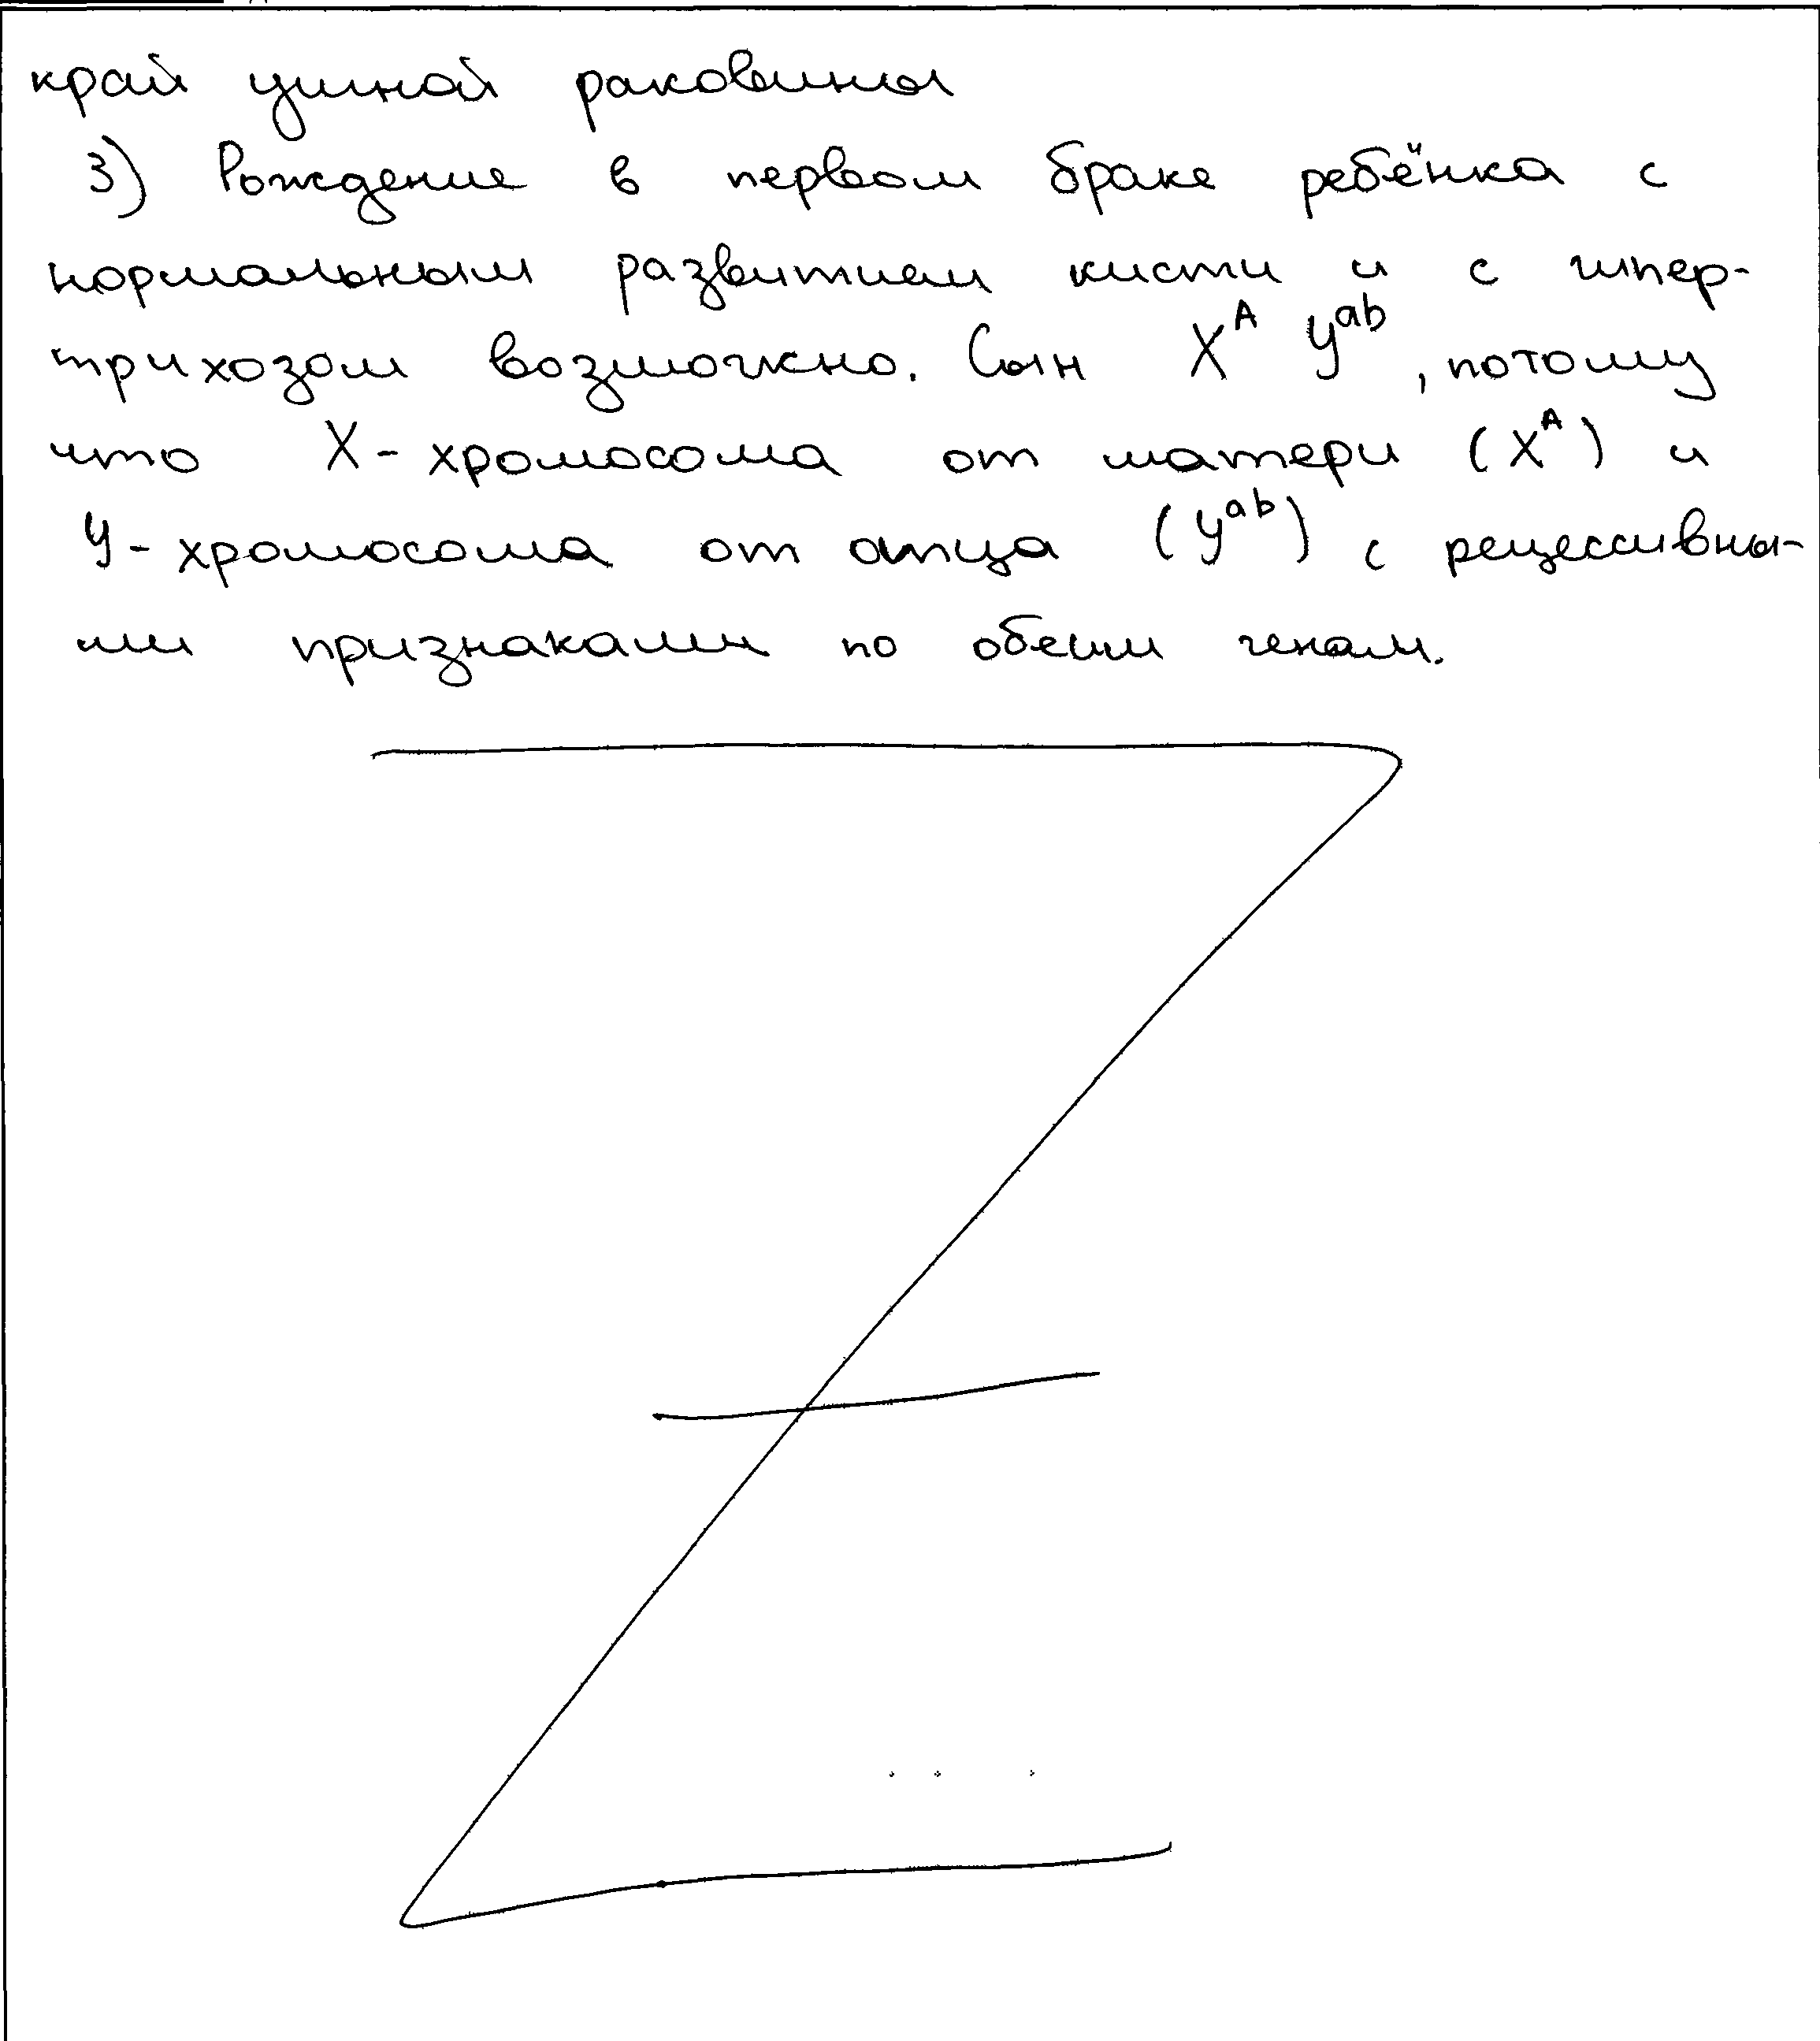 край ушной раковины
3) Рождение в первом браке ребёнка с
нормальным развитием кисти и с гипер-
трихозом возможно. Сын X^A Y^ab, потому
что X-хромосома от матери (X^A) и
Y-хромосома от отца (Y^ab) с рецессивны-
ми признаками по обеим генам.